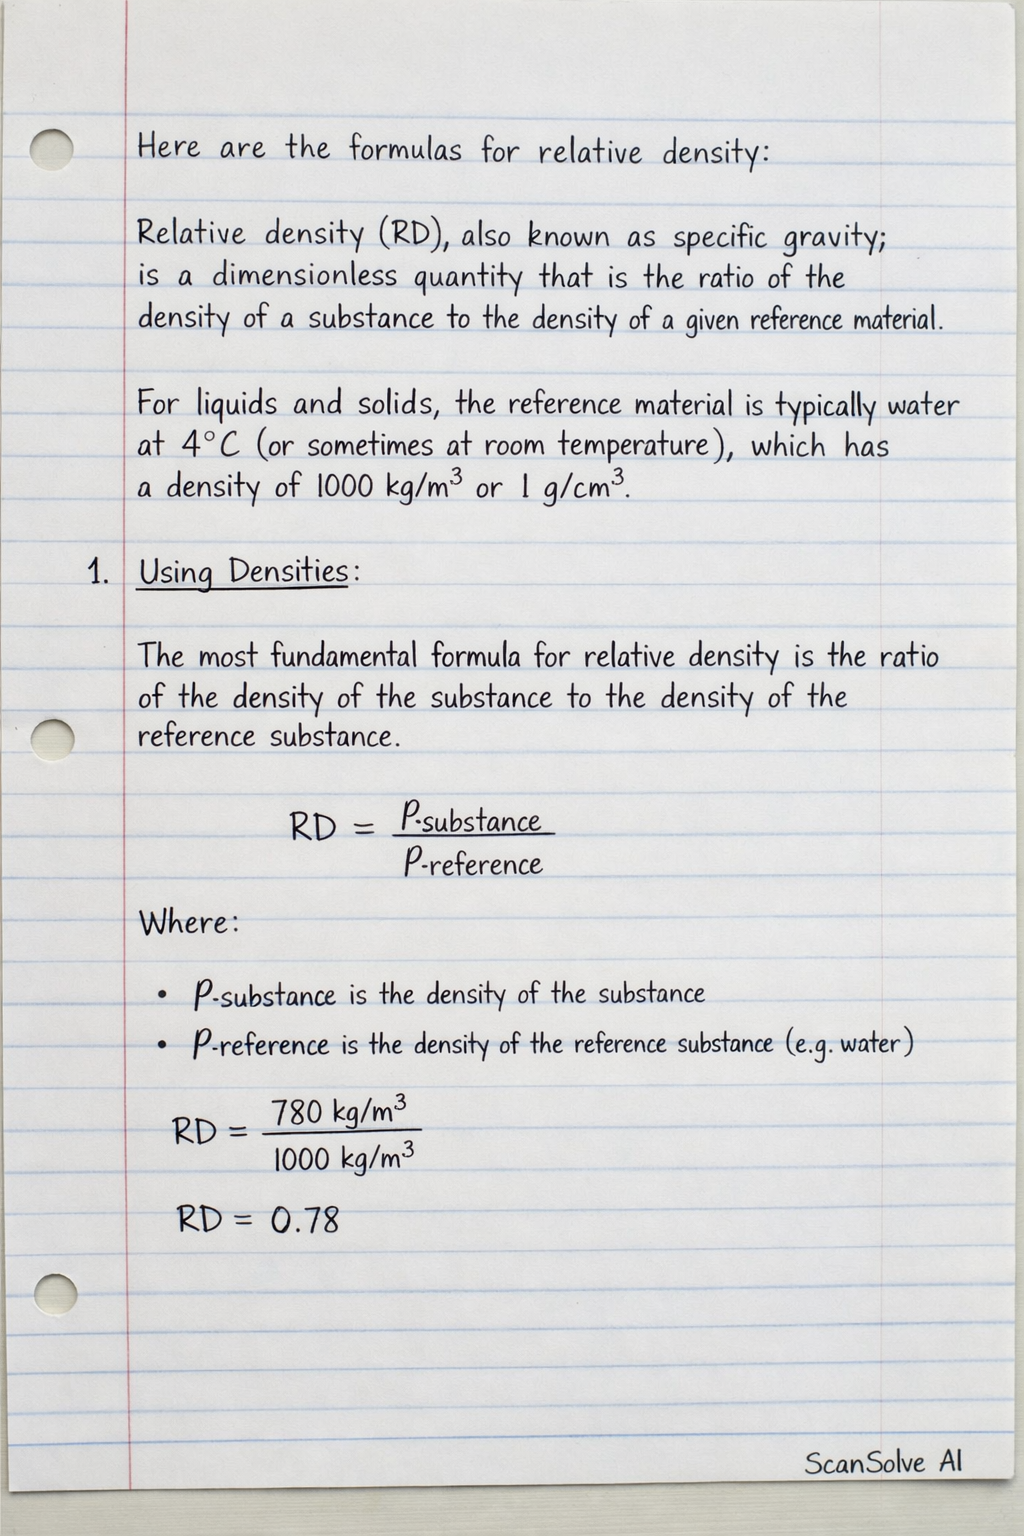 Here are the formulas for relative density:
Relative density (RD), also known as specific gravity;
is a dimensionless quantity that is the ratio of the
density of a substance to the density of a given reference material.
For liquids and solids, the reference material is typically water
at 4°C (or sometimes at room temperature), which has
a density of 1000 kg/m³ or 1 g/cm³.
1. Using Densities:
The most fundamental formula for relative density is the ratio
of the density of the substance to the density of the
reference substance.
RD = P-substance
P-reference
Where:
• P-substance is the density of the substance
• P-reference is the density of the reference substance (e.g. water)
RD = 780 kg/m³
1000 kg/m³
RD = 0.78
ScanSolve AI